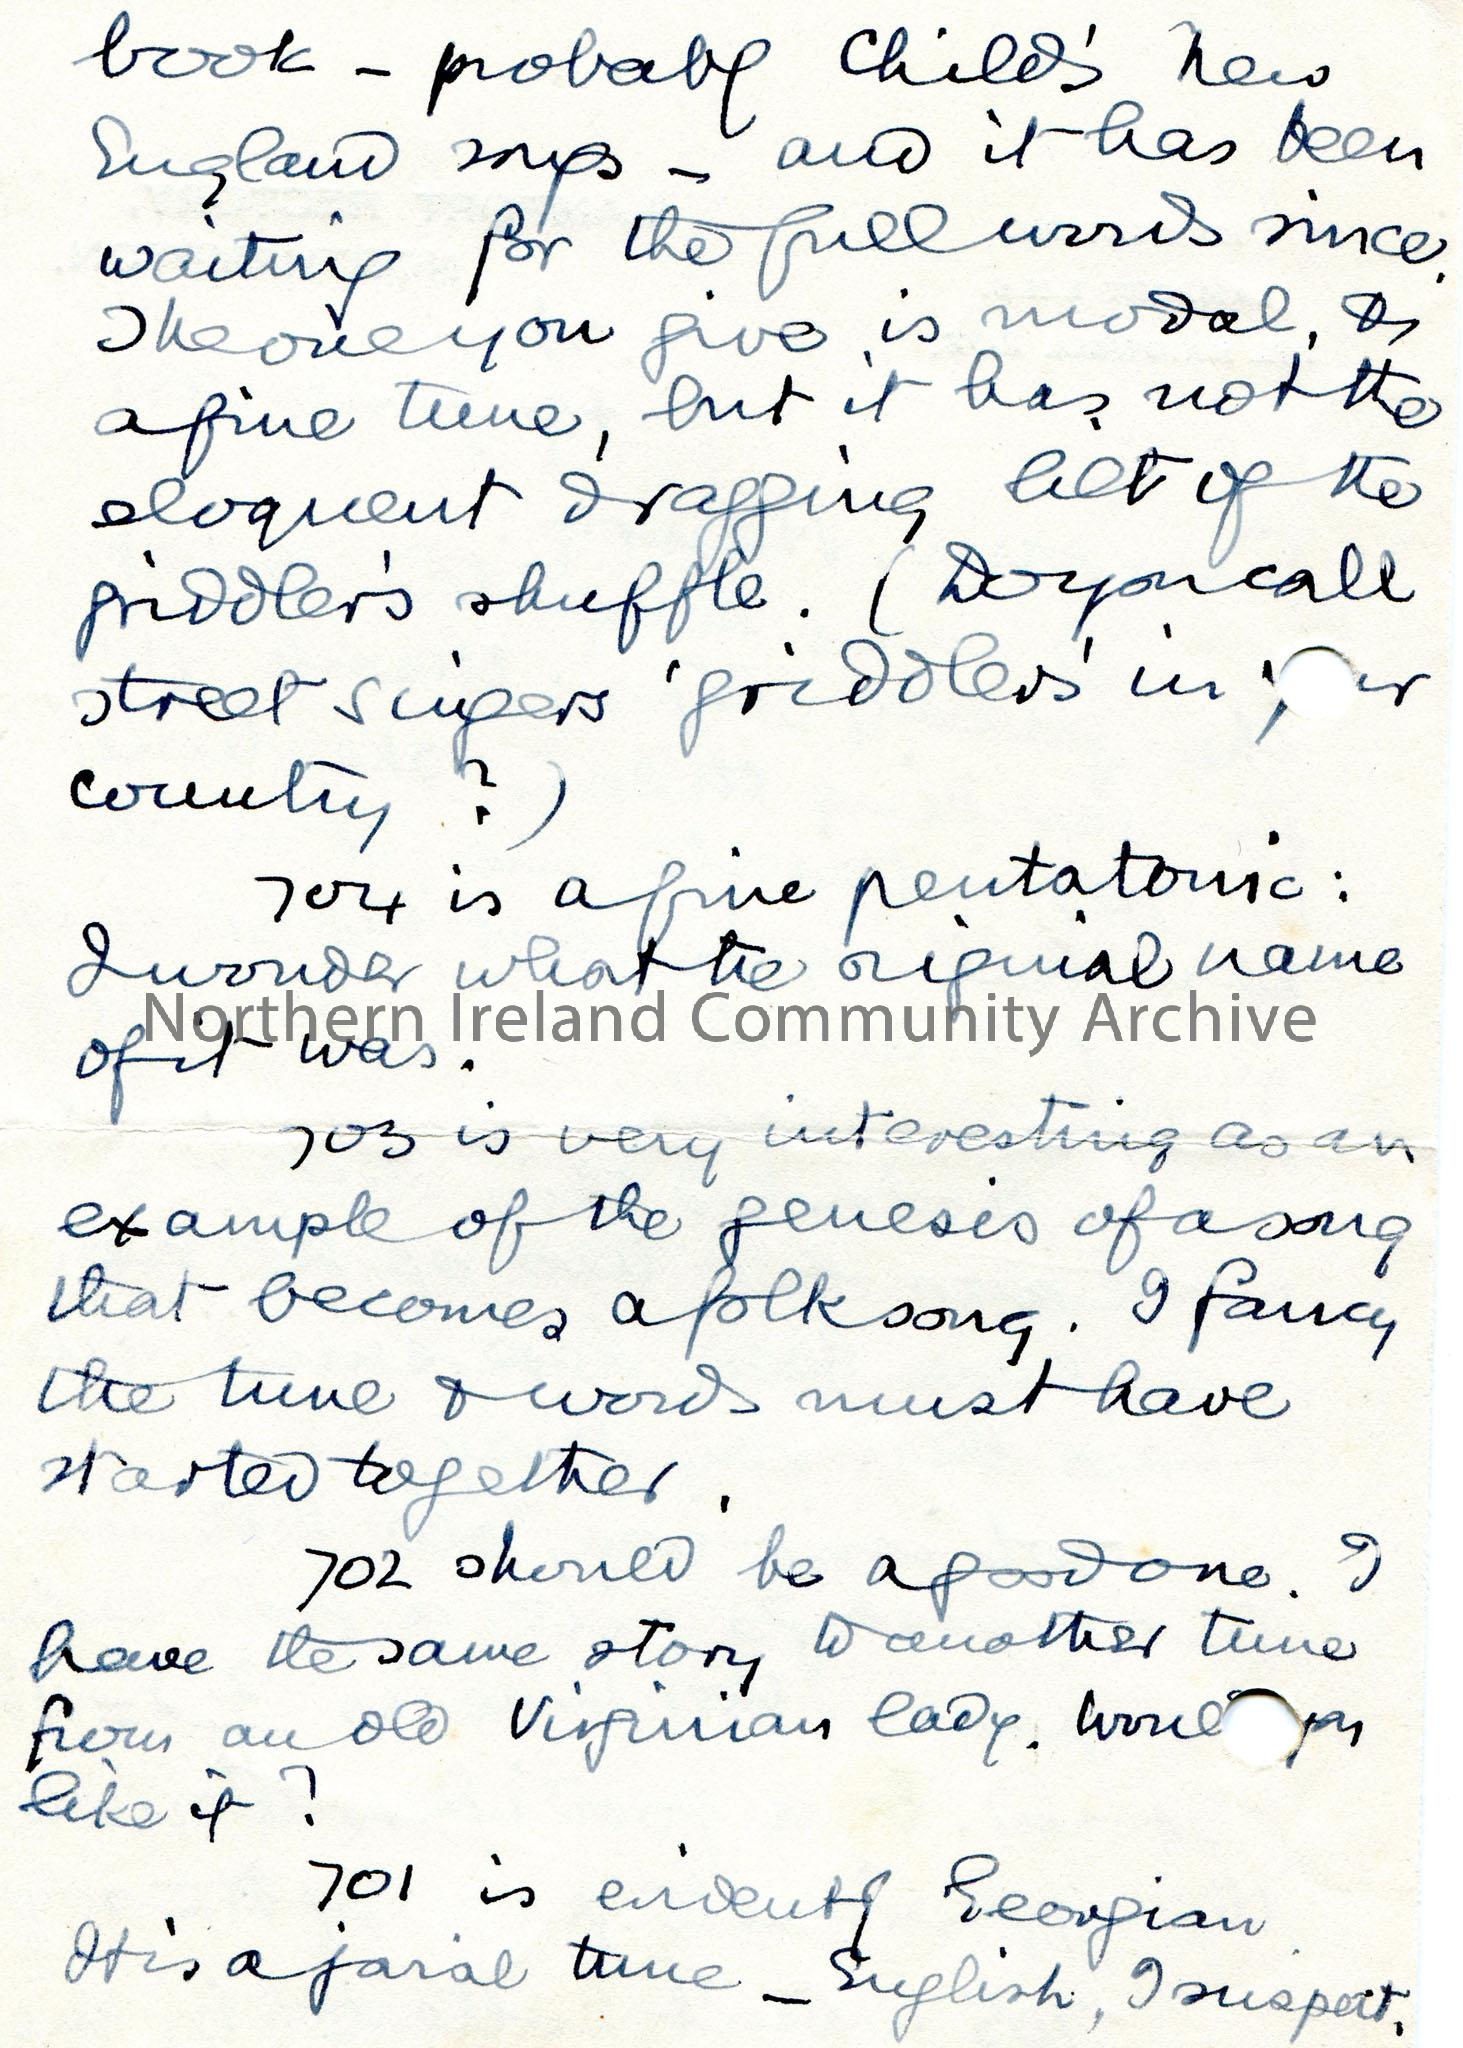 book – probably Child's New
England songs – and it has been
waiting for the full words since.
The one you give is modal, &
a fine tune, but it has not the
eloquent dragging lilt of the
griddler's shuffle. (Do you call
street singers 'griddlers' in your
country?)
704 is a fine pentatonic:
I wonder what the original name
Northern Ireland Community Archive
of it was.
703 is very interesting as an
example of the genesis of a song
that becomes a folk song. I fancy
the tune & words must have
started together.
702 should be a good one. I
have the same story to another tune
from an old Virginian lady. Would you
like it?
701 is evidently Georgian.
It is a jovial tune – English, I suspect.